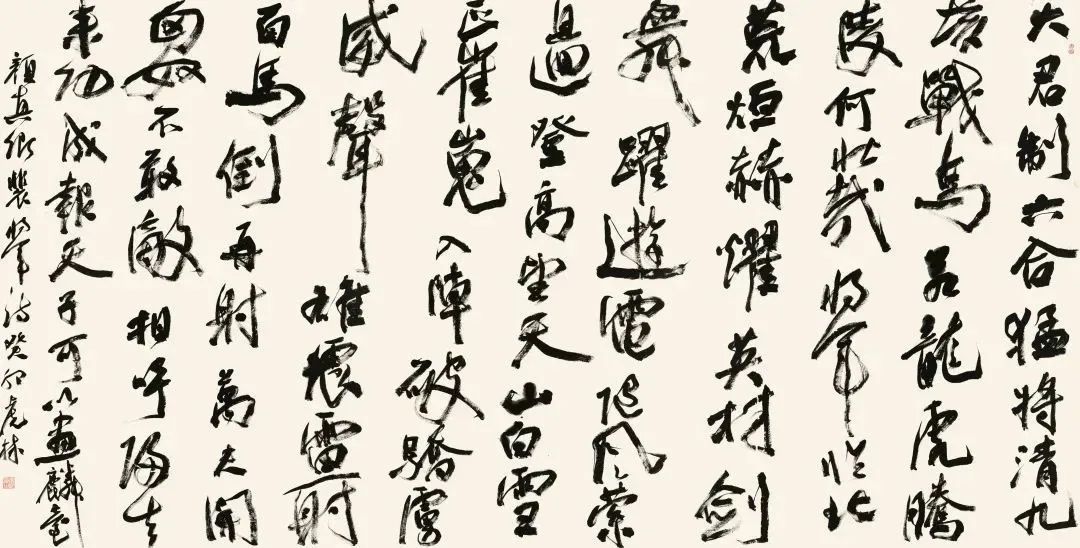 大君制六合猛將清九
垓戰馬若龍虎騰
陵何壯哉將軍臨北
荒烜赫燿英材劍
舞躍遊電隨風縈
且迴登高望天山白雪
正崔嵬入陣破驕虜
威聲雄震雷一射
百馬倒再射萬夫開
匈奴不敢敵相呼歸去
來功成報天子可以畫麟臺
顏真卿裴將軍詩癸卯虎林